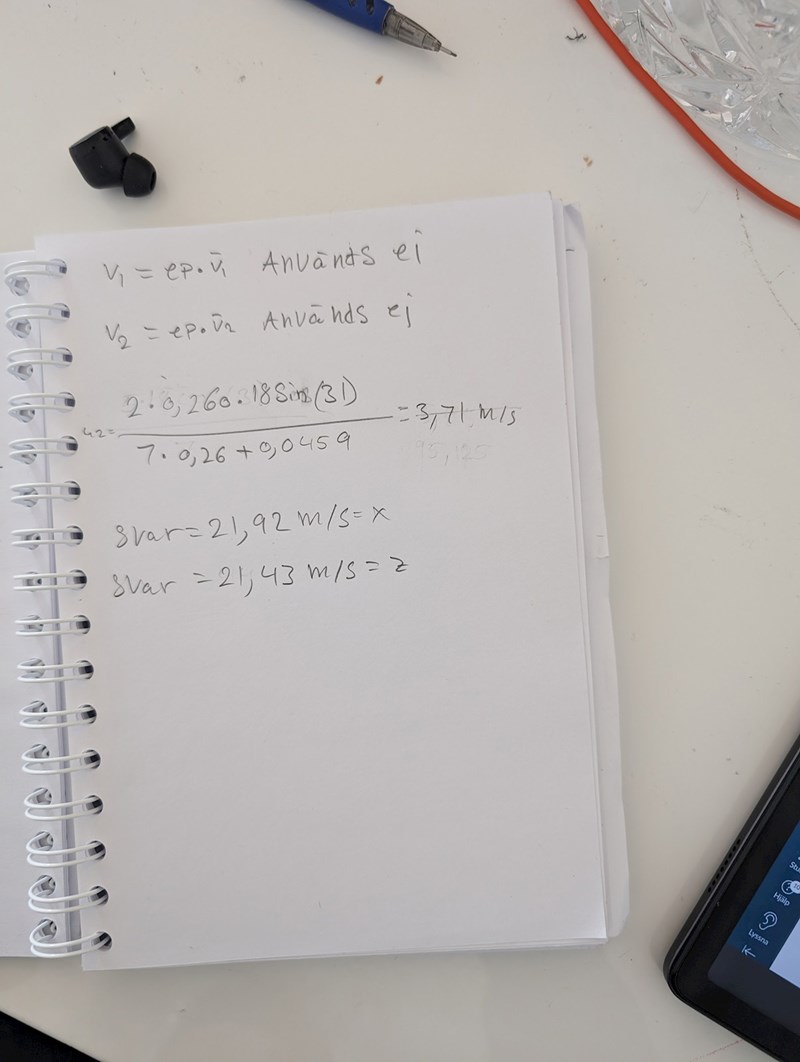 V₁ = ep. v̄₁ Används ej
V₂ = ep. v̄₂ Används ej
2·0,260·18 Sin(31)
= 3,71 m/s
7·0,26+0,0459
svar = 21,92 m/s = x
svar = 21,43 m/s = z
Hjälp
Lyssna